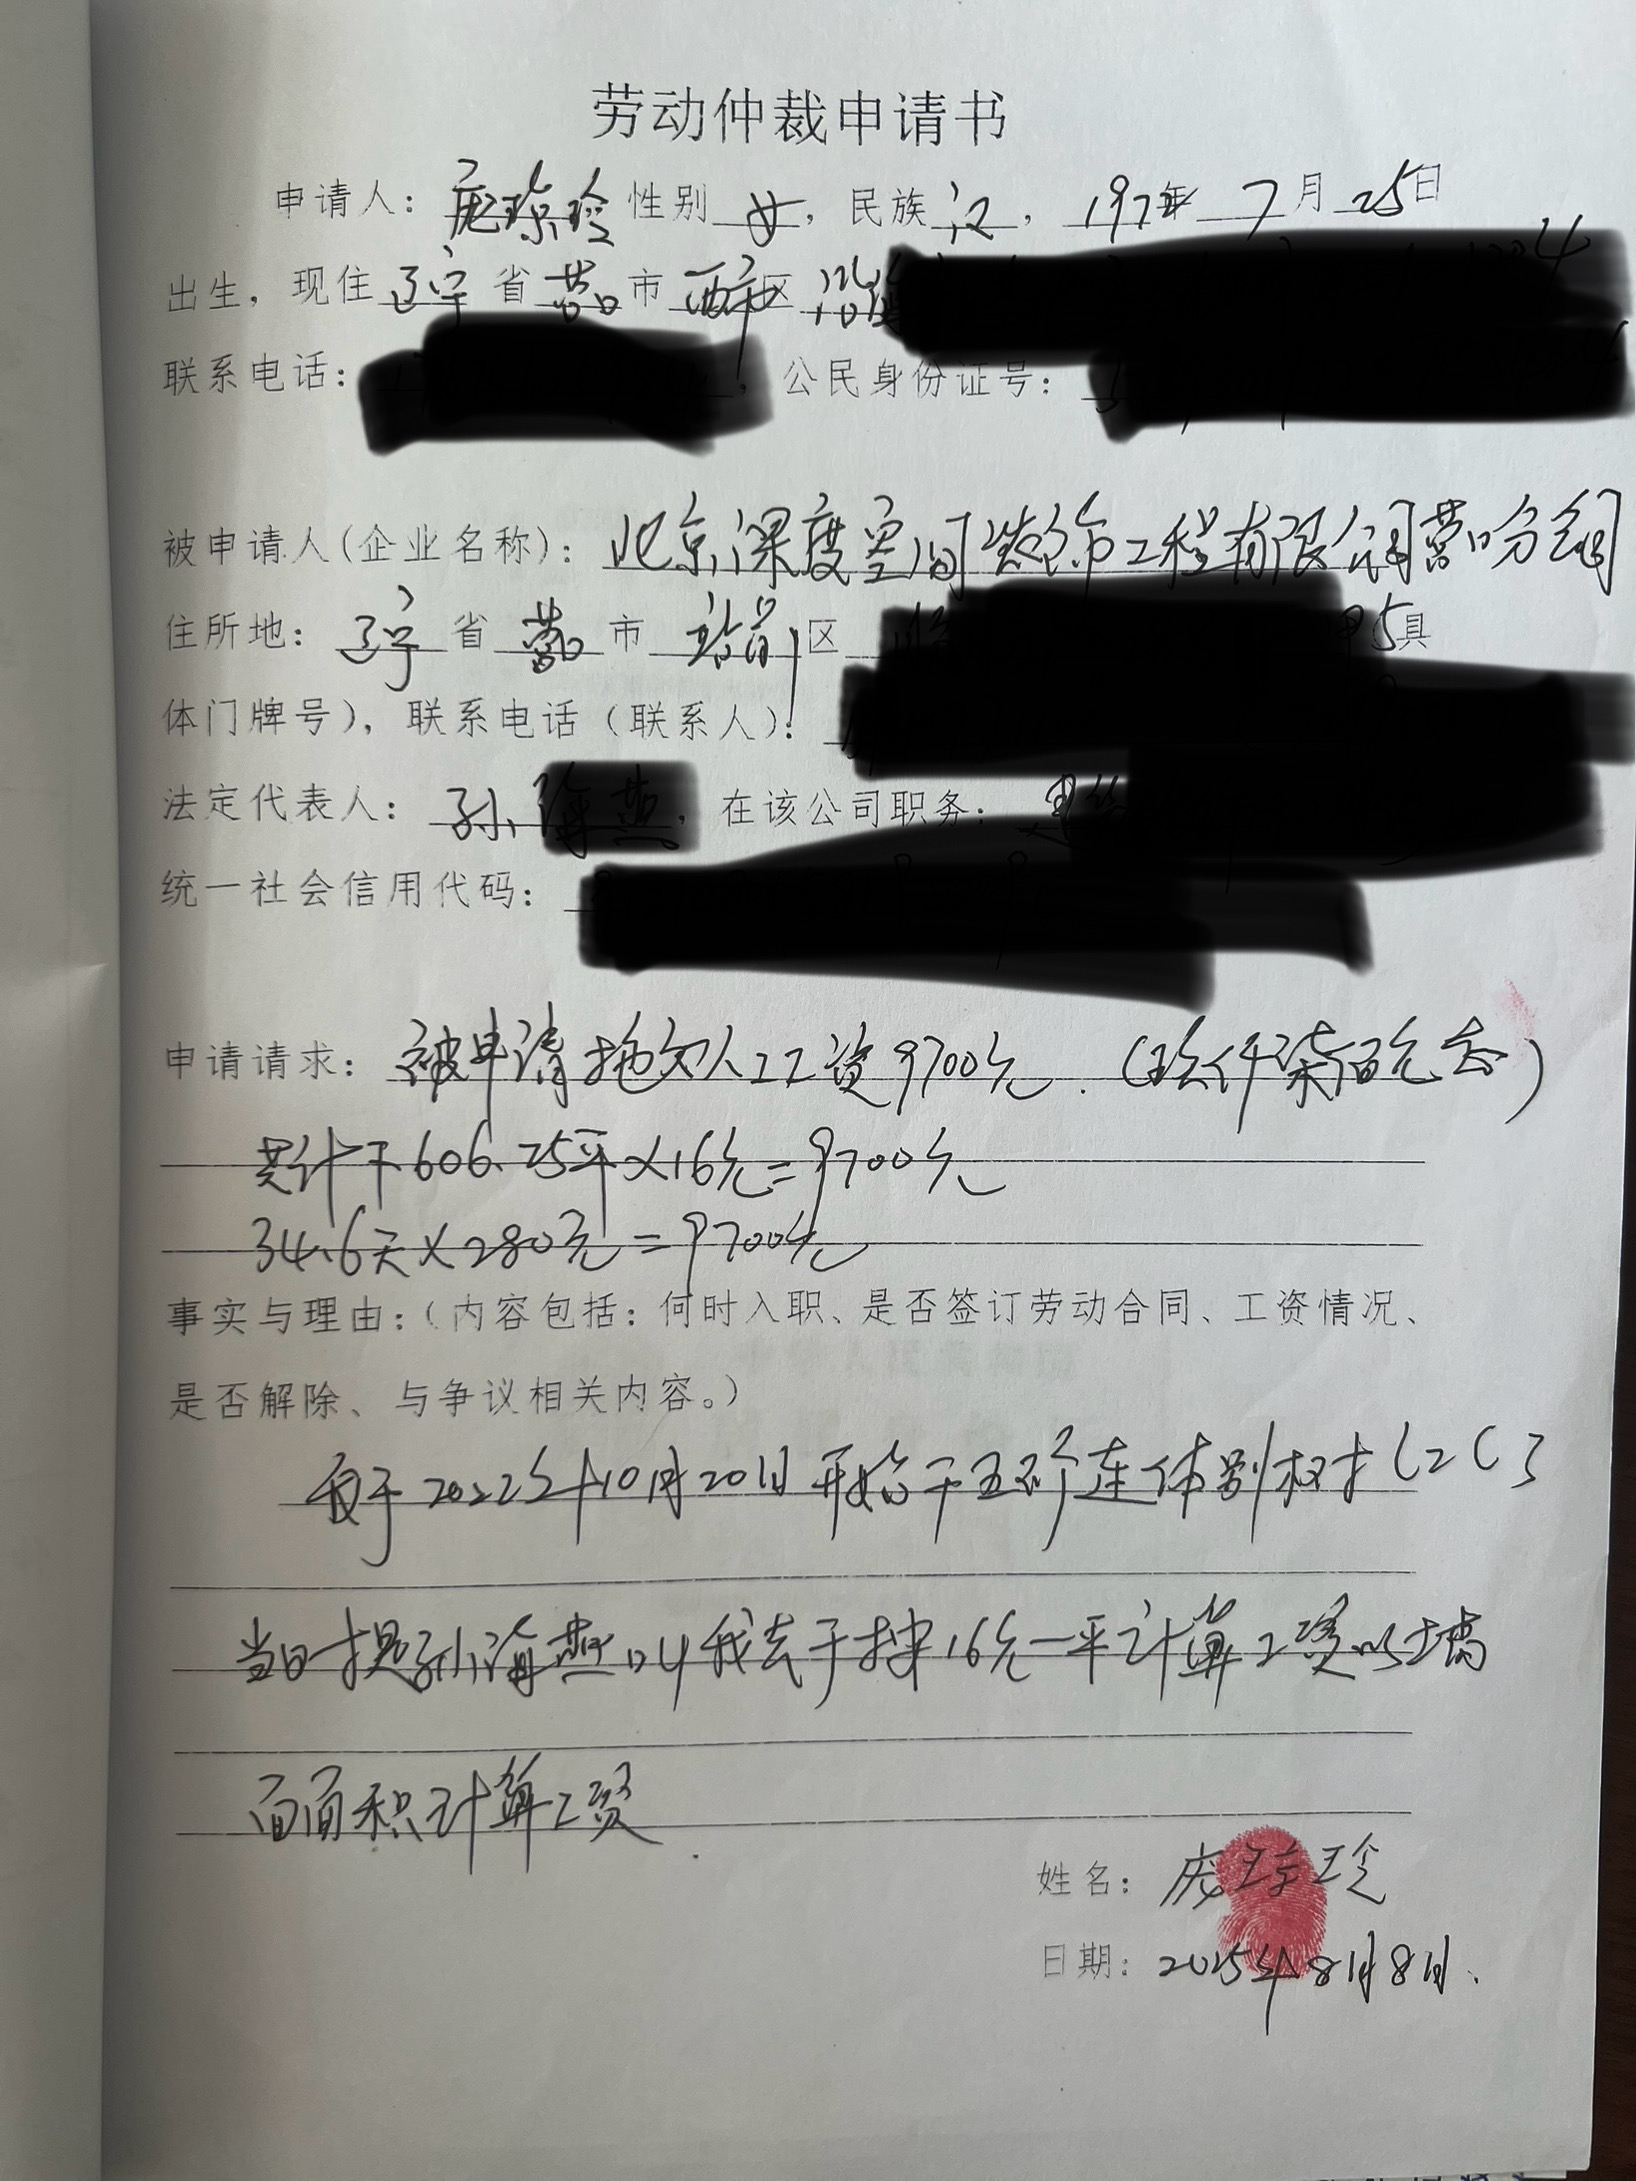 劳动仲裁申请书
申请人：庞琼玲 性别 女，民族 汉，197 年 7 月 25日
出生，现住 辽宁 省 营口 市 西市 区
联系电话： ，公民身份证号：
被申请人（企业名称）：北京深度空间装饰工程有限公司营口分公司
住所地：辽宁 省 营口 市 站前 区 5具
体门牌号），联系电话（联系人）：
法定代表人：孙 ，在该公司职务：
统一社会信用代码：
申请请求：被申请拖欠人工工资9700元．（玖仟柒佰元 ）
共计干606.25平×16元=9700元
34.6天×280元=9700元
事实与理由：（内容包括：何时入职、是否签订劳动合同、工资情况、
是否解除、与争议相关内容。）
自于2022年10月20日开始干五 连体别
当时 孙海燕叫我去干 16元一平计算工资以墙
面面积计算工资．
姓名：庞琼玲
日期：2025年8月8日．